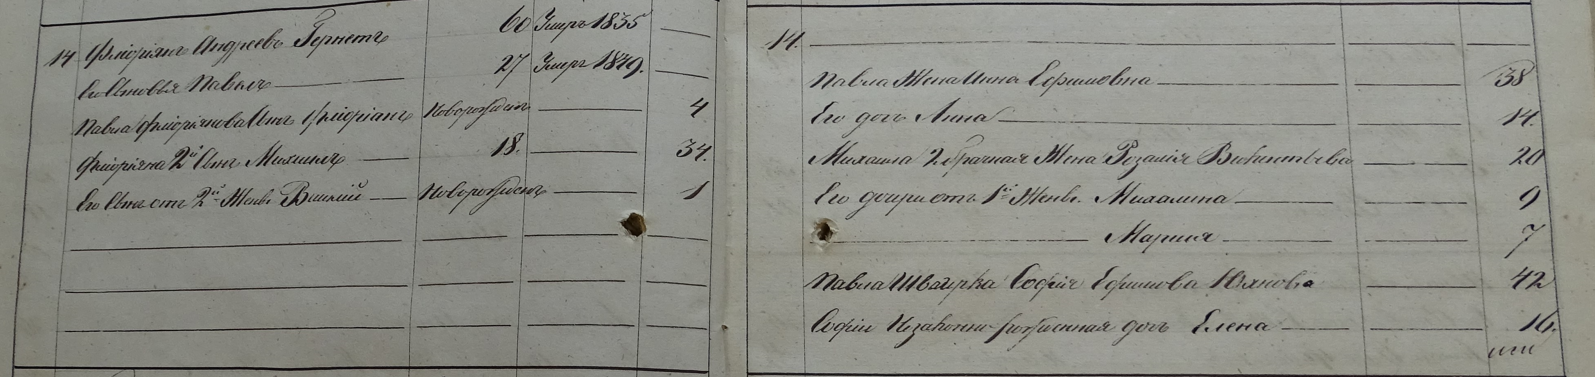 14 Флоріанъ Андреевъ Гернетъ 60 Умеръ 1835
Его Сыновья Павелъ 27 Умеръ 1849.
Павла Флоріянова Сынъ Флоріанъ Новорожденъ 4
Флоріяна 2й Сынъ Михаилъ 18. 34.
Его Сынъ отъ 2й Жены Викентій Новорожденъ 1
14.
Павла Жена Анна Ефимовна 38
Его дочь Анна 14.
Михаила 2 брачная Жена Розалія Викентьева 20
Его дочери отъ 1й Жены. Михалина 9
Марія 7
Павла Швагерка Софія Ефимова Юхнова 42
Софіи Незаконно-рожденная дочь Елена 16.